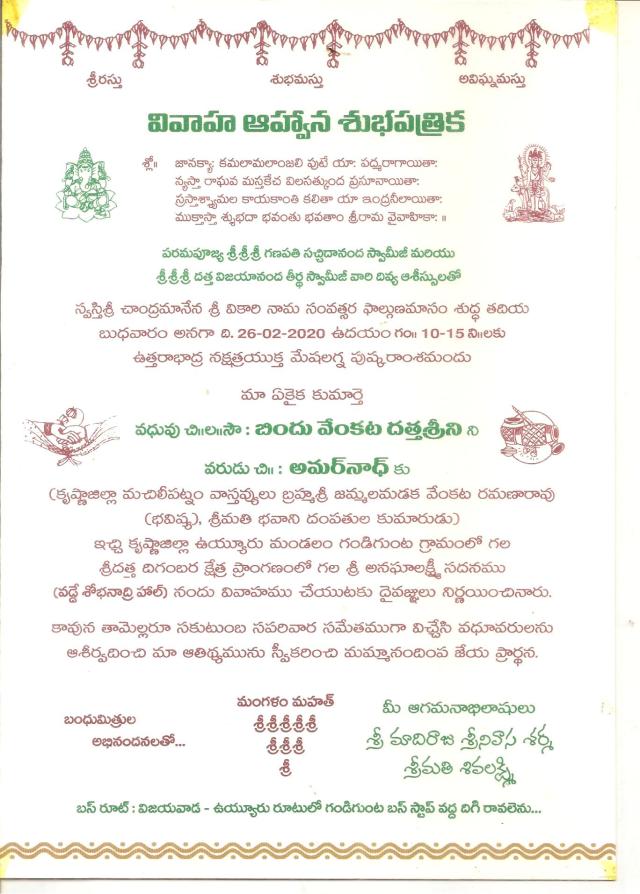 శ్రీరస్తు శుభమస్తు అవిఘ్నమస్తు
వివాహ ఆహ్వాన శుభపత్రిక
శ్లో॥ జానక్యాః కమలామలాంజలి పుటే యాః పద్మరాగాయితాః
న్యస్తా రాఘవ మస్తకేచ విలసత్కుంద ప్రసూనాయితాః
స్రస్తాశ్శ్యామల కాయకాంతి కలితా యా ఇంద్రనీలాయితాః
ముక్తాస్తా శ్శుభదా భవంతు భవతాం శ్రీరామ వైవాహికాః ॥
పరమపూజ్య శ్రీశ్రీశ్రీ గణపతి సచ్చిదానంద స్వామీజీ మరియు
శ్రీశ్రీశ్రీ దత్త విజయానంద తీర్థ స్వామీజీ వారి దివ్య ఆశీస్సులతో
స్వస్తిశ్రీ చాంద్రమానేన శ్రీ వికారి నామ సంవత్సర ఫాల్గుణమాసం శుద్ధ తదియ
బుధవారం అనగా ది. 26-02-2020 ఉదయం గం॥ 10-15 ని॥లకు
ఉత్తరాభాద్ర నక్షత్రయుక్త మేషలగ్న పుష్కరాంశమందు
మా ఏకైక కుమార్తె
వధువు చి॥ల॥సౌ : బిందు వేంకట దత్తశ్రీని ని
వరుడు చి॥ : అమర్‌నాధ్ కు
(కృష్ణాజిల్లా మచిలీపట్నం వాస్తవ్యులు బ్రహ్మశ్రీ జమ్మలమడక వేంకట రమణారావు
(భవిష్య), శ్రీమతి భవాని దంపతుల కుమారుడు)
ఇచ్చి కృష్ణాజిల్లా ఉయ్యూరు మండలం గండిగుంట గ్రామంలో గల
శ్రీదత్త దిగంబర క్షేత్ర ప్రాంగణంలో గల శ్రీ అనఘాలక్ష్మీ సదనము
(వడ్డే శోభనాద్రి హాల్) నందు వివాహము చేయుటకు దైవజ్ఞులు నిర్ణయించినారు.
కావున తామెల్లరూ సకుటుంబ సపరివార సమేతముగా విచ్చేసి వధూవరులను
ఆశీర్వదించి మా ఆతిథ్యమును స్వీకరించి మమ్మానందింప జేయ ప్రార్థన.
బంధుమిత్రుల
అభినందనలతో...
మంగళం మహత్
శ్రీశ్రీశ్రీశ్రీశ్రీ
శ్రీశ్రీశ్రీ
శ్రీ
మీ ఆగమనాభిలాషులు
శ్రీ మాదిరాజు శ్రీనివాస శర్మ
శ్రీమతి శివలక్ష్మి
బస్ రూట్ : విజయవాడ - ఉయ్యూరు రూటులో గండిగుంట బస్ స్టాప్ వద్ద దిగి రావలెను...